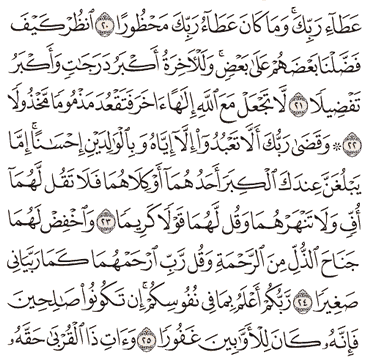 عَطَآءِ رَبِّكَ ۚ وَمَا كَانَ عَطَآءُ رَبِّكَ مَحْظُورًا ﴿٢٠﴾ ٱنظُرْ كَيْفَ
فَضَّلْنَا بَعْضَهُمْ عَلَىٰ بَعْضٍ ۚ وَلَلْـَٔاخِرَةُ أَكْبَرُ دَرَجَـٰتٍ وَأَكْبَرُ
تَفْضِيلًا ﴿٢١﴾ لَّا تَجْعَلْ مَعَ ٱللَّهِ إِلَـٰهًا ءَاخَرَ فَتَقْعُدَ مَذْمُومًا مَّخْذُولًا
﴿٢٢﴾ ۞ وَقَضَىٰ رَبُّكَ أَلَّا تَعْبُدُوٓا۟ إِلَّآ إِيَّاهُ وَبِٱلْوَٰلِدَيْنِ إِحْسَـٰنًا ۚ إِمَّا
يَبْلُغَنَّ عِندَكَ ٱلْكِبَرَ أَحَدُهُمَآ أَوْ كِلَاهُمَا فَلَا تَقُل لَّهُمَآ
أُفٍّ وَلَا تَنْهَرْهُمَا وَقُل لَّهُمَا قَوْلًا كَرِيمًا ﴿٢٣﴾ وَٱخْفِضْ لَهُمَا
جَنَاحَ ٱلذُّلِّ مِنَ ٱلرَّحْمَةِ وَقُل رَّبِّ ٱرْحَمْهُمَا كَمَا رَبَّيَانِى
صَغِيرًا ﴿٢٤﴾ رَّبُّكُمْ أَعْلَمُ بِمَا فِى نُفُوسِكُمْ ۚ إِن تَكُونُوا۟ صَـٰلِحِينَ
فَإِنَّهُۥ كَانَ لِلْأَوَّٰبِينَ غَفُورًا ﴿٢٥﴾ وَءَاتِ ذَا ٱلْقُرْبَىٰ حَقَّهُۥ